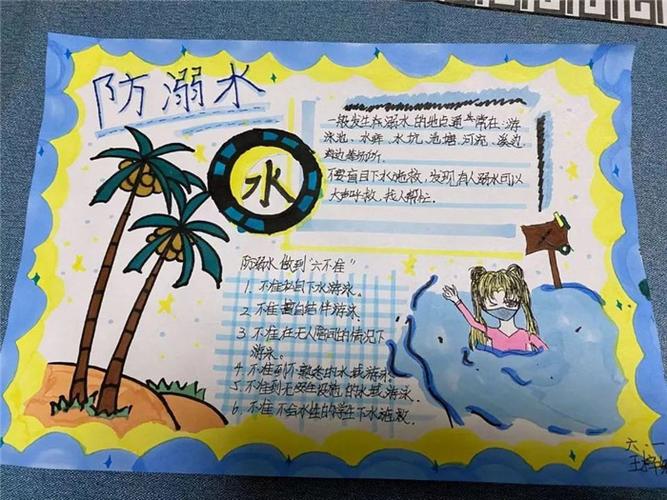 防溺水
水
一般发生在溺水的地点通常在:游
泳池、水库、水坑、池塘、河流、溪边、
海边等场所。
不要盲目下水施救,发现有人溺水可以
大声呼救,找人帮忙。
防溺水做到"六不准"
1、不准私自下水游泳。
2、不准擅自结伴游泳。
3、不准在无人陪同的情况下
游泳。
4、不准到不熟悉的水域游泳。
5、不准到无安全设施的水域游泳。
6、不准不会水性的学生下水施救。
六.一
王